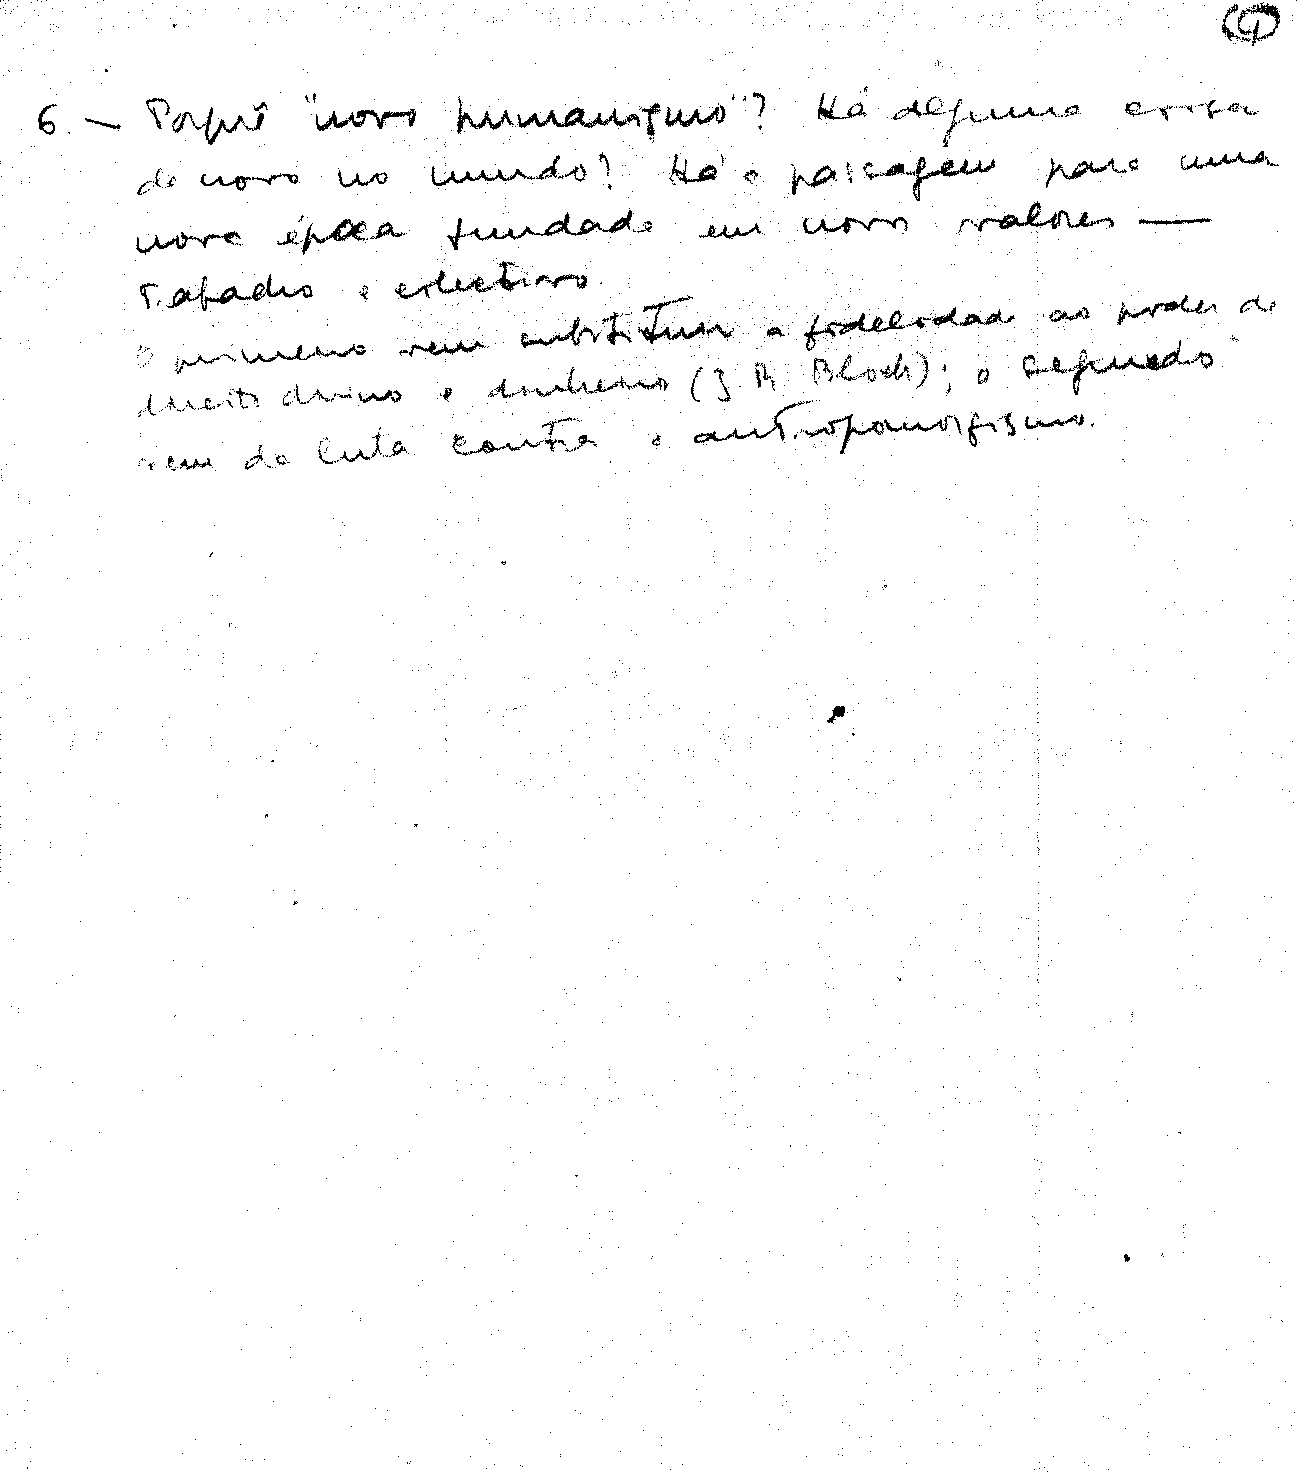 6 — Porquê "novo humanismo"? Há alguma coisa
de novo no mundo? Há a passagem para uma
nova época fundada em novos valores —
Trabalho e colectivo.
O primeiro vem substituir a fidelidade ao poder de
direito divino e dinheiro (J R Bloch); o segundo
vem da luta contra o antropomorfismo.